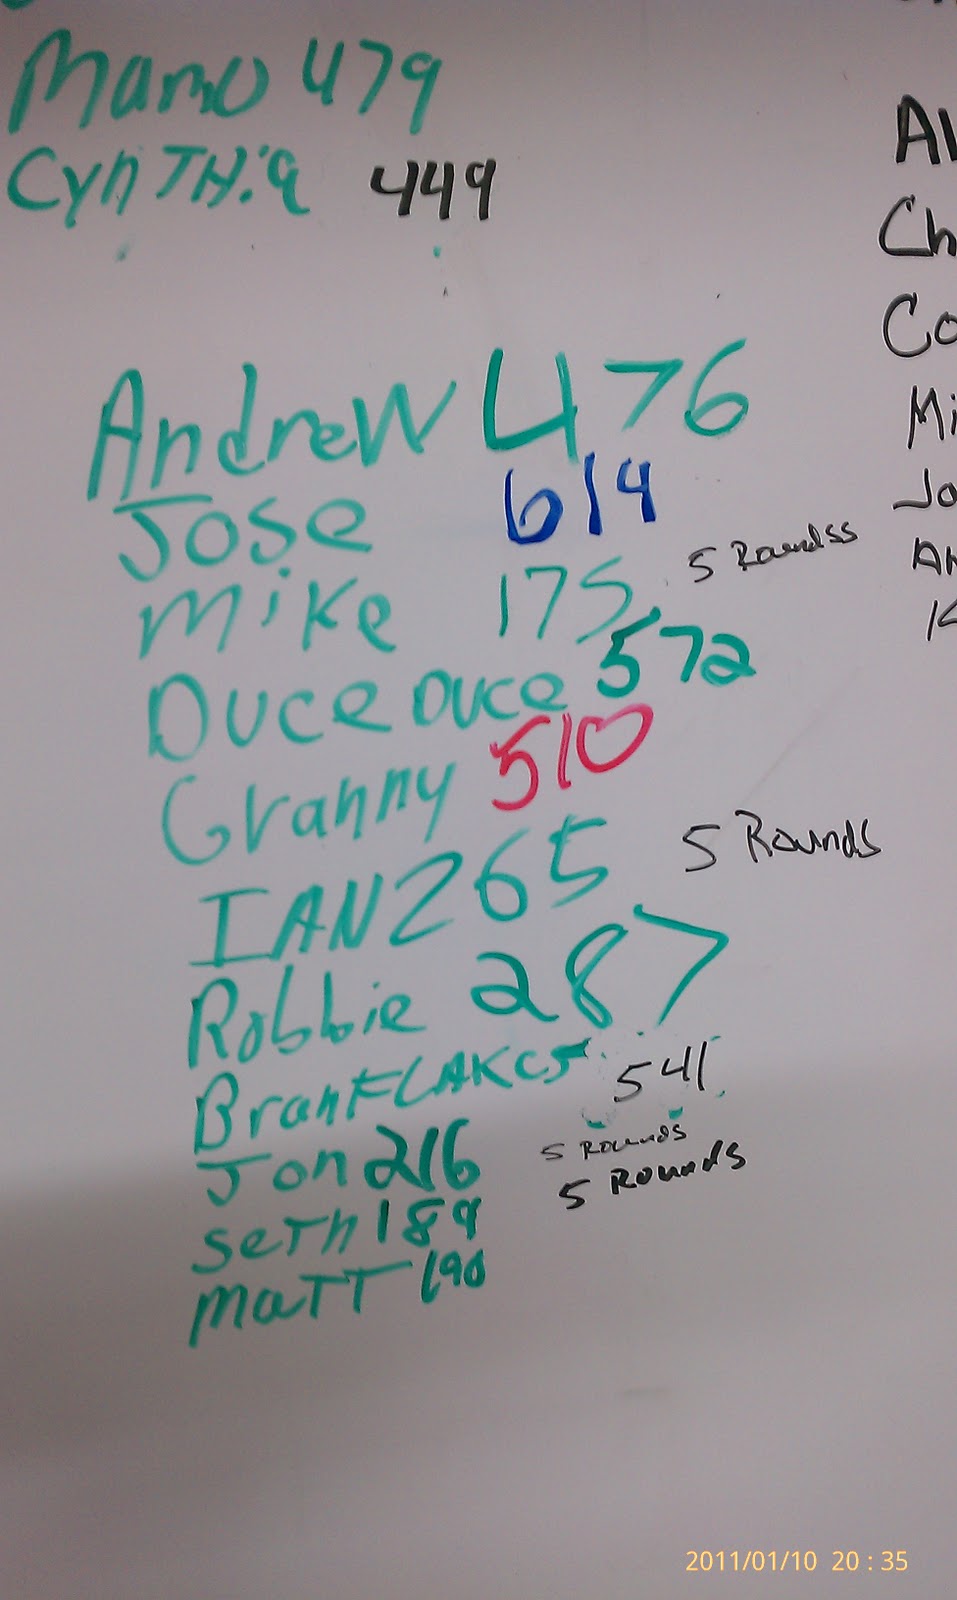 Mamo 479
CynTHia 449
Andrew 476
Jose 614
Mike 175 5 Roundss
Duce Duce 572
Granny 510
IAN 265 5 Rounds
Robbie 287
BranFLAKES 541
Jon 216 5 Rounds
Seth 189 5 Rounds
MaTT 190
Al
Ch
Co
Mi
Jo
An
K
2011/01/10 20:35